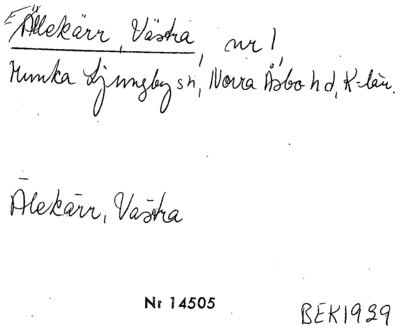 Ålekärr, Västra, nr 1,
Munka Ljungby sn, Norra Åsbo hd, K-län.
Ålekärr, Västra
Nr 14505
BEK1929